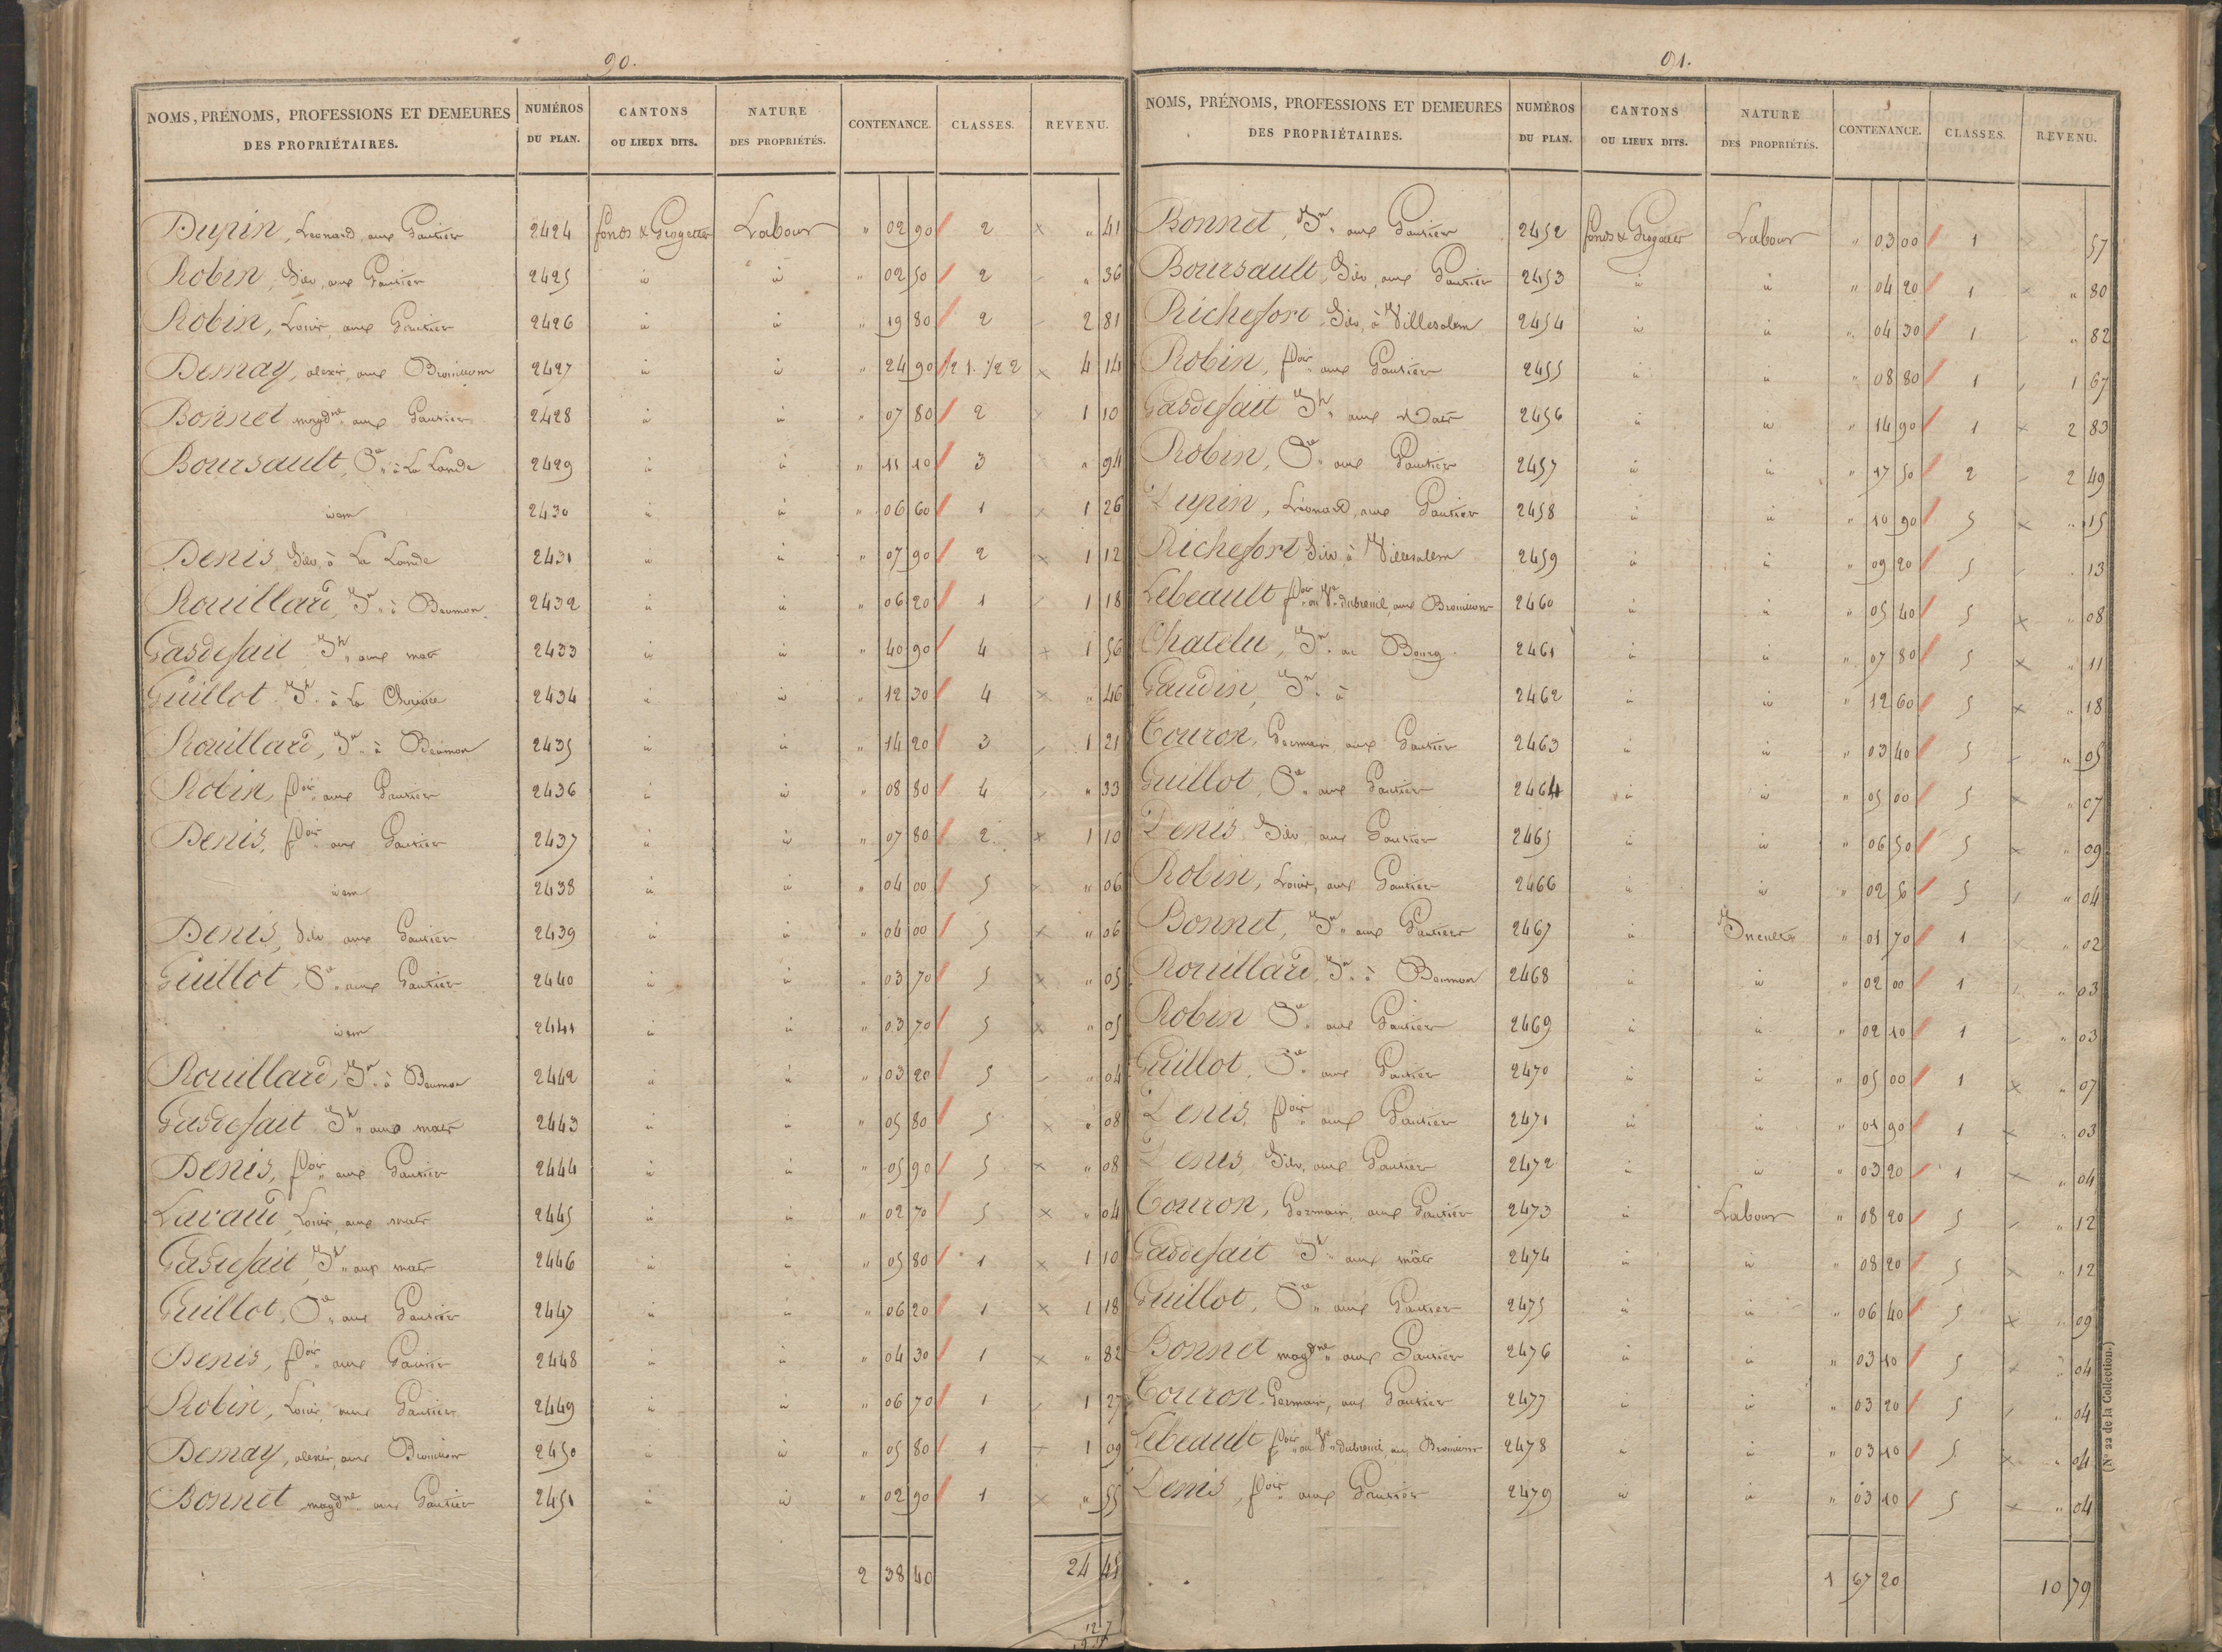 90.
NOMS, PRÉNOMS, PROFESSIONS ET DEMEURES DES PROPRIÉTAIRES. NUMÉROS DU PLAN. CANTONS OU LIEUX DITS. NATURE DES PROPRIÉTÉS. CONTENANCE. CLASSES. REVENU.
Dupin, Leonard, aux Gautier 2424 fonds & Labour " 02 90 2 " 41
Robin, Silv, aux Gautier 2425 id id " 02 50 2 " 36
Robin, Louis, aux Gautier 2426 id id " 19 80 2 2 81
Demay, alexis, aux 2427 id id " 24 90 1/2 1. 1/2 2 4 14
Bonnet magdne aux Gautier 2428 id id " 07 80 2 1 10
Boursault, à La Lande 2429 id id " 11 10 3 " 94
idem 2430 id id " 06 60 1 1 26
Denis, Silv, à La Lande 2431 id id " 07 90 2 1 12
Rouillard, Jn à Beumon 2432 id id " 06 20 1 1 18
Gasdefait Jh aux mats 2433 id id " 40 90 4 1 56
Guillot Jh à La 2434 id id " 12 30 4 " 46
Rouillard, Jn à Beumon 2435 id id " 14 20 3 1 21
Robin, foir aux Gautier 2436 id id " 08 80 4 " 33
Denis, foir aux Gautier 2437 id id " 07 80 2 1 10
idem 2438 id id " 04 00 5 " 06
Denis, Silv aux Gautier 2439 id id " 04 00 5 " 06
Guillot, aux Gautier 2440 id id " 03 70 5 " 05
idem 2441 id id " 03 70 5 " 05
Rouillard, Jn à Beumon 2442 id id " 03 20 5 " 04
Gasdefait Jh aux mats 2443 id id " 05 80 5 " 08
Denis, foir aux Gautier 2444 id id " 05 90 5 " 08
Lavaud, Louis, aux mats 2445 id id " 02 70 5 " 04
Gasdefait Jh aux mats 2446 id id " 05 80 1 1 10
Guillot, aux Gautier 2447 id id " 06 20 1 1 18
Denis, foir aux Gautier 2448 id id " 04 30 1 " 82
Robin, Louis, aux Gautier 2449 id id " 06 70 1 1 27
Demay, alexis, aux 2450 id id " 05 80 1 1 09
Bonnet magdne aux Gautier 2451 id id " 02 90 1 " 55
2 38 40 24 45
91.
NOMS, PRÉNOMS, PROFESSIONS ET DEMEURES DES PROPRIÉTAIRES. NUMÉROS DU PLAN. CANTONS OU LIEUX DITS. NATURE DES PROPRIÉTÉS. CONTENANCE. CLASSES. REVENU.
Bonnet, Jn aux Gautier 2452 fonds & Labour " 03 00 1 57
Boursault, Silv, aux Gautier 2453 id id " 04 20 1 " 80
Richefort Silv, à Villesalem 2454 id id " 04 30 1 " 82
Robin, foir aux Gautier 2455 id id " 08 80 1 1 67
Gasdefait Jh aux Mats 2456 id id " 14 90 1 2 83
Robin, aux Gautier 2457 id id " 17 50 2 2 49
Dupin, Léonard, aux Gautier 2458 id id " 10 90 5 " 15
Richefort Silv à Villesalem 2459 id id " 09 20 5 " 13
Lebeault foir ou Ve dubreuil, aux 2460 id id " 05 40 5 " 08
Chatelu, Jn au Bourg 2461 id id " 07 80 5 " 11
Gaudin, Jn à 2462 id id " 12 60 5 " 18
Couron, Germain, aux Gautier 2463 id id " 03 40 5 " 05
Guillot, aux Gautier 2464 id id " 05 00 5 " 07
Denis Silv, aux Gautier 2465 id id " 06 50 5 " 09
Robin, Louis, aux Gautier 2466 id id " 02 5 " 04
Bonnet, Jn aux Gautier 2467 id Inculte " 01 70 1 " 02
Rouillard, Jn à Beumon 2468 id id " 02 00 1 " 03
Robin aux Gautier 2469 id id " 02 10 1 " 03
Guillot, aux Gautier 2470 id id " 05 00 1 " 07
Denis, foir aux Gautier 2471 id id " 01 90 1 " 03
Denis, Silv, aux Gautier 2472 id id " 03 20 1 " 04
Couron, Germain, aux Gautier 2473 id Labour " 08 20 5 " 12
Gasdefait Jh aux mâts 2474 id id " 08 20 5 " 12
Guillot, aux Gautier 2475 id id " 06 40 5 " 09
Bonnet magdne aux Gautier 2476 id id " 03 10 5 " 04
Couron, Germain, aux Gautier 2477 id id " 03 20 5 " 04
Lebeault foir ou Ve dubreuil, aux 2478 id id " 03 10 5 " 04
Denis, foir aux Gautier 2479 id id " 03 10 5 " 04
1 67 20 10 79
(No 22 de la Collection.)